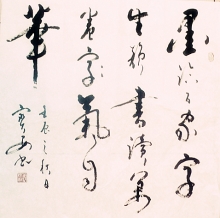 墨臨百家字
生書讀萬
卷字氣自
華
壬辰之秋日